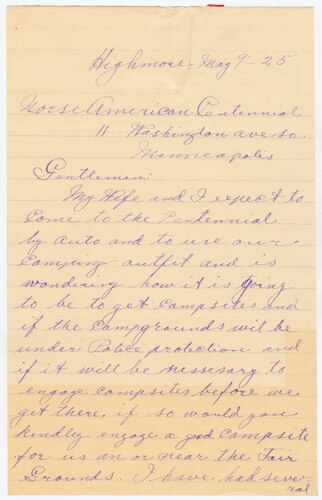 Highmore May 9-25
Norse American Centennial
11 Washington ave so.
Minneapolis
Gentlemen:
My Wife and I expect to
come to the Centennial
by auto and to use our
camping outfit and is
wondering how it is going
to be to get campsites and
if the campgrounds will be
under Police protection and
if it will be nessesary to
engage campsites before we
get there, if so would you
kindly engage a good campsite
for us on or near the Fair
Grounds. I have had seve-
ral